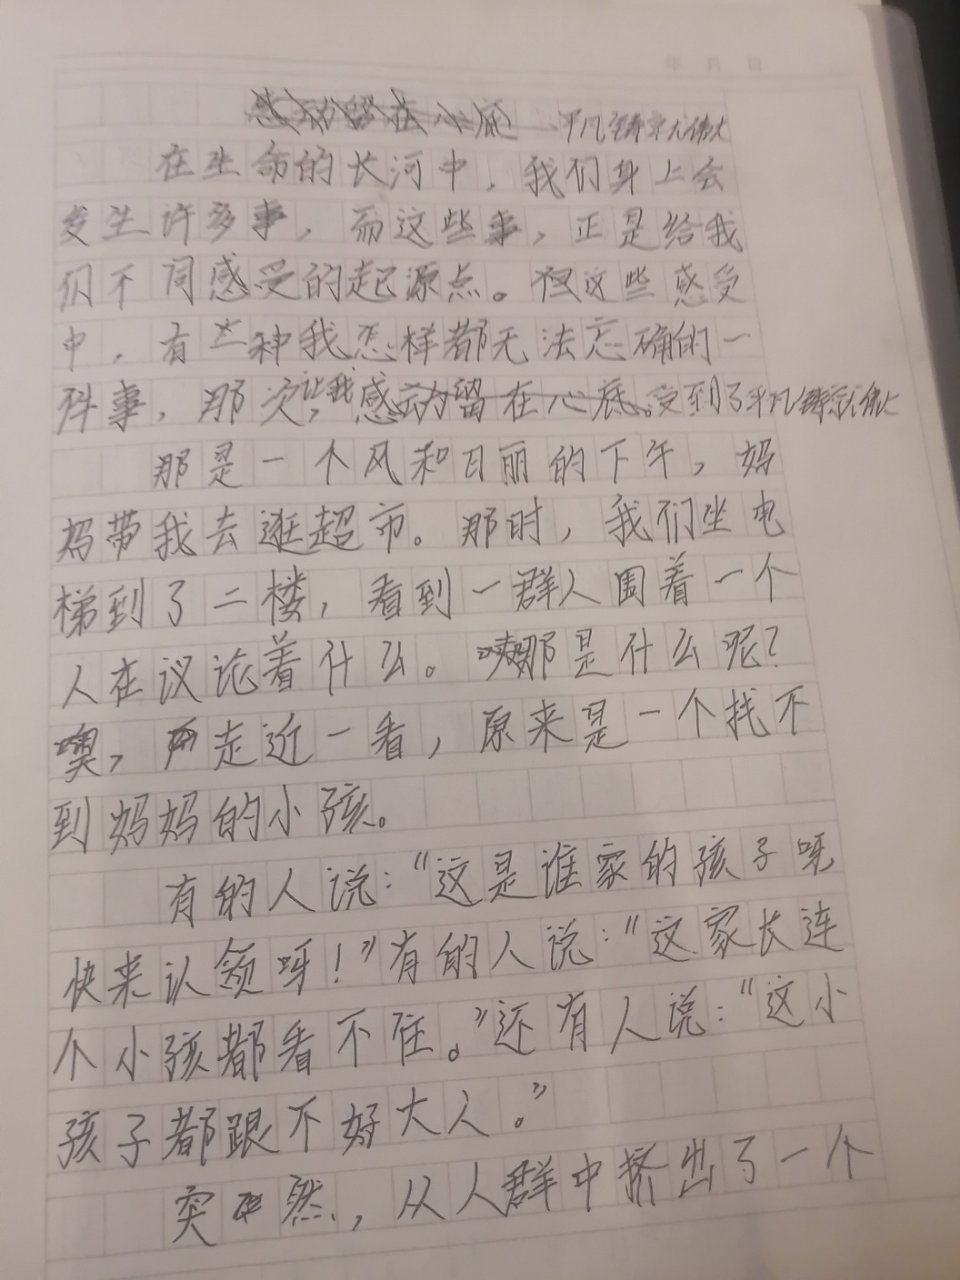 年 月 日
感动留在心底 平凡铸就伟大
在生命的长河中，我们身上会
发生许多事，而这些事，正是给我
们不同感受的起源点。但这些感受
中，有一种我怎样都无法忘确的一
件事，那次，让我感动留在心底。受到了平凡铸就伟大
那是一个风和日丽的下午，妈
妈带我去逛超市。那时，我们坐电
梯到了二楼，看到一群人围着一个
人在议论着什么。咦那是什么呢？
噢，走近一看，原来是一个找不
到妈妈的小孩。
有的人说：“这是谁家的孩子呀
快来认领呀！”有的人说：“这家长连
个小孩都看不住。”还有人说：“这小
孩子都跟不好大人。”
突然，从人群中挤出了一个